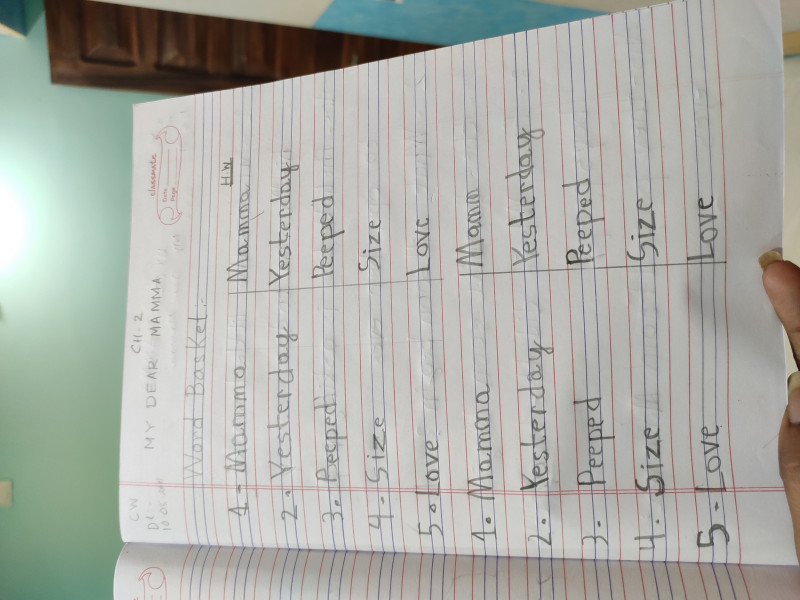 CW
CH-2
MY DEAR MAMMA
classmate
Date
Page
Word Basket:-
H.W
1. Mamma Mamma
2. Yesterday Yesterday
3. Peeped Peeped
4. Size Size
5. Love Love
1. Mamma Mamm
2. Yesterday Yesterday
3. Peeped Peeped
4. Size Size
5. Love Love